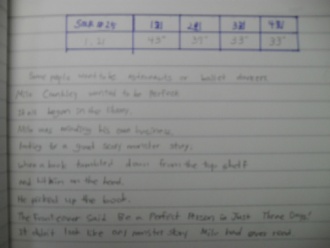 SSR #24 1회 2회 3회 4회
1. 21 43" 35" 33" 33"
Some people want to be astronauts or ballet dancers.
Milo Crinkley wanted to be perfect.
It all began in the library.
Milo was minding his own business,
looking for a good scary monster story,
when a book tumbled down from the top shelf
and hit him on the head.
He picked up the book.
Be a Perfect Person in Just Three Days!
It didn't look like any monster story Milo had ever read.